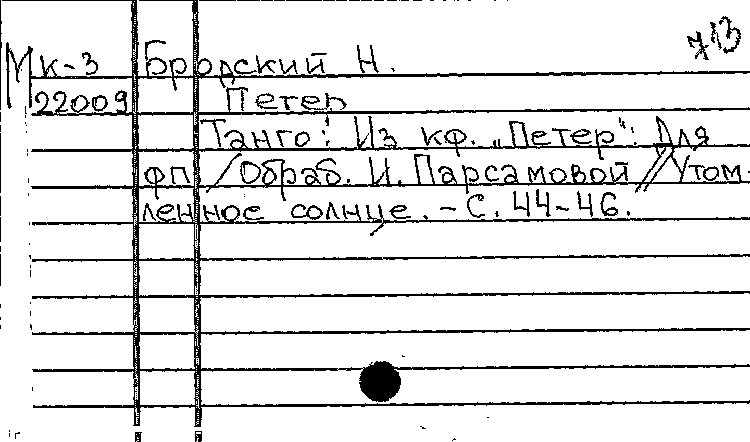 713
Мк-3 Бродский Н.
22009 Петер
Танго: Из кф. „Петер“: Для
фп. / Обраб. И. Парсамовой // Утом-
ленное солнце. - С. 44-46.